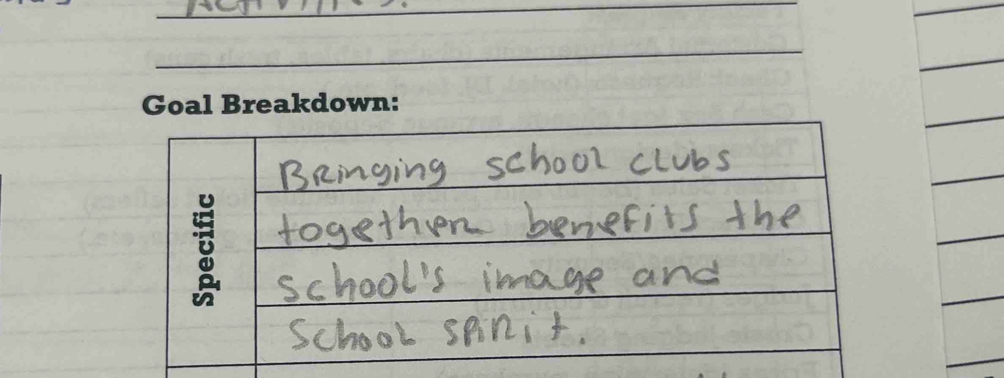 Activities.
Goal Breakdown:
Specific
Bringing school clubs
together benefits the
school's image and
school spirit.